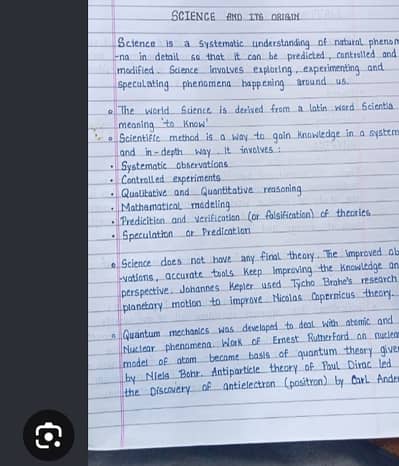 SCIENCE AND ITS ORIGIN
Science is a systematic understanding of natural phenom
-na in detail so that it can be predicted, controlled and
modified. Science involves exploring, experimenting and
speculating phenomena happening around us.
The world Science is derived from a latin word Scientia
meaning 'to Know'
Scientific method is a way to gain Knowledge in a system
and in-depth way. It involves :
Systematic observations
Controlled experiments
Qualitative and Quantitative reasoning
Mathematical modeling
Predicition and verification (or falsification) of theories
Speculation or Predication
Science does not have any final theory. The improved ob
-vations, accurate tools Keep improving the Knowledge an
perspective. Johannes Kepler used Tycho Brahe's research
planetary motion to improve Nicolas Copernicus theory.
Quantum mechanics was developed to deal with atomic and
Nuclear phenomena. Work of Ernest Rutherford on nuclea
model of atom became basis of quantum theory give
by Niels Bohr. Antiparticle theory of Paul Dirac led
the Discovery of antielectron (positron) by Carl Ander